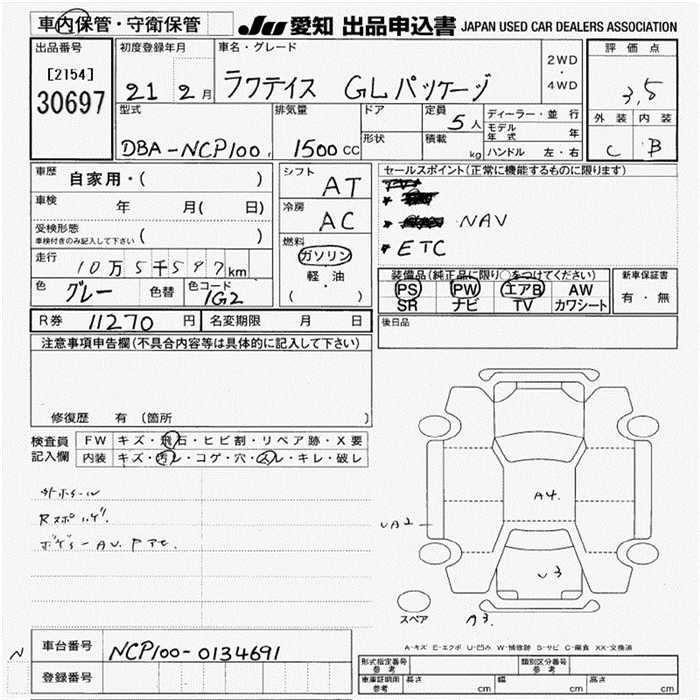 車内保管・守衛保管
JU 愛知 出品申込書 JAPAN USED CAR DEALERS ASSOCIATION
出品番号
[2154]
30697
初度登録年月
21 2月
車名・グレード
ラクティス GLパッケージ
2WD
・
4WD
評価点
3,5
外装 内装
C B
型式
DBA-NCP100
排気量
1500 CC
ドア
形状
定員
5人
積載
kg
ディーラー・並行
モデル年式 年
ハンドル 左・右
車歴
自家用・( )
車検
年 月( 日)
受検形態
車検付きのみ記入して下さい ( )
走行
10万5千597km
色
グレー
色替
色コード
1G2
シフト
AT
冷房
AC
燃料
ガソリン
・
軽・油
( )
セールスポイント(正常に機能するものに限ります)
* NAV
* ETC
装備品(純正品に限り○をつけてください)
PS PW エアB AW
SR ナビ TV カワシート
新車保証書
有・無
後日品
R券 11270 円
名変期限 月 日
注意事項申告欄(不具合内容等は具体的に記入して下さい)
修復歴 有(箇所 )
検査員
記入欄
FW キズ・飛石・ヒビ割・リペア跡・X要
内装 キズ・汚レ・コゲ・穴・スレ・キレ・破レ
A4.
UA2
U3
A3
スペア
A-キズ E-エクボ U-凹み W-補修跡 S-サビ C-腐食 XX-交換済
N
車台番号
NCP100-0134691
登録番号
形式指定番号
参考
類別区分番号
参考
車庫証明用
参考
長さ cm
幅 cm
高さ cm